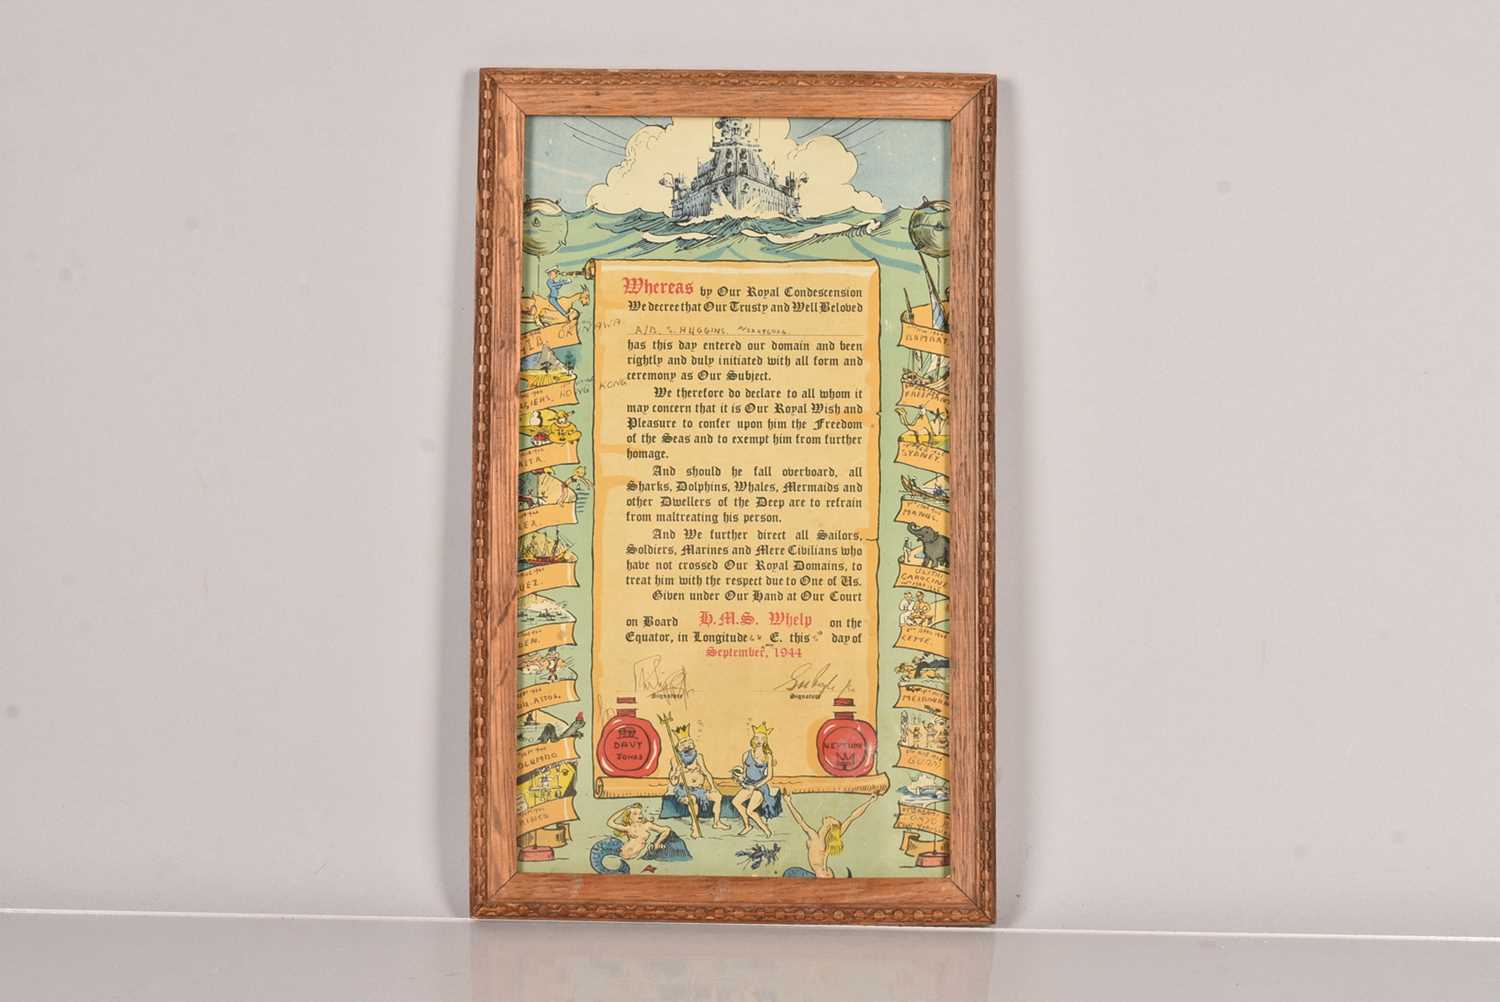 Whereas by Our Royal Condescension
We decree that Our Trusty and Well Beloved
A/B. S. HUGGINS.
has this day entered our domain and been
rightly and duly initiated with all form and
ceremony as Our Subject.
We therefore do declare to all whom it
may concern that it is Our Royal Wish and
Pleasure to confer upon him the Freedom
of the Seas and to exempt him from further
homage.
And should he fall overboard, all
Sharks, Dolphins, Whales, Mermaids and
other Dwellers of the Deep are to refrain
from maltreating his person.
And We further direct all Sailors,
Soldiers, Marines and Mere Civilians who
have not crossed Our Royal Domains, to
treat him with the respect due to One of Us.
Given under Our Hand at Our Court
on Board H.M.S. Whelp on the
Equator, in Longitude E. this day of
September, 1944
Signature
Signature
DAVY
JONES
NEPTUNE
OKINAWA
HONG KONG
OLOMBO
BOMBAY
FREEMANTLE
SYDNEY
MANUS
ULITHI
CAROLINE
LEYTE
MELBOURNE